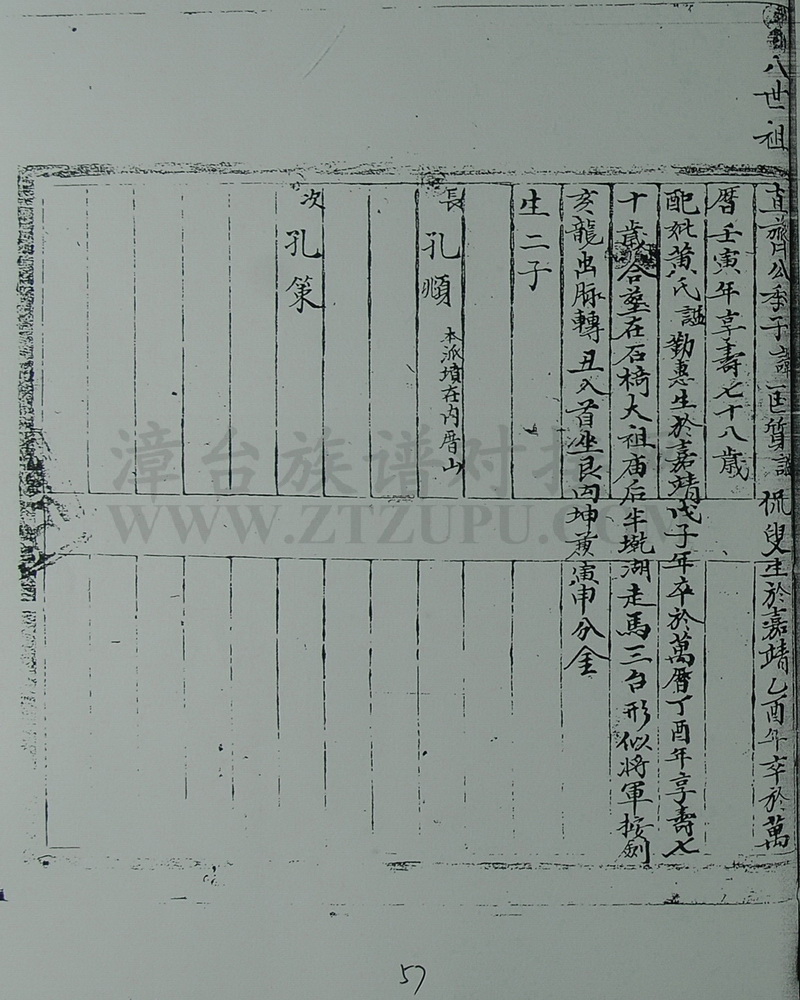 八世祖
直齋公季子諱匡質謚侃叟生於嘉靖乙酉年卒於萬
曆壬寅年享壽七十八歲
配妣黃氏謚勤惠生於嘉靖戊子年卒於萬曆丁酉年享壽七
十歲合塟在石椅大祖庙后半壠湖走馬三台形似将軍按劍
亥龍出脉轉丑入首坐艮向坤兼寅申分金
生二子
長 孔順 本派墳在内厝山
次 孔策
漳台族谱对接
WWW.ZTZUPU.COM
57